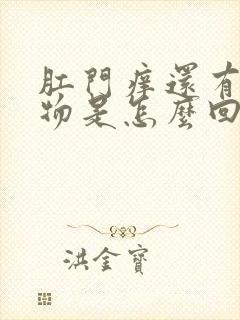 肛門痒還有
物是怎麼回
洪金寶